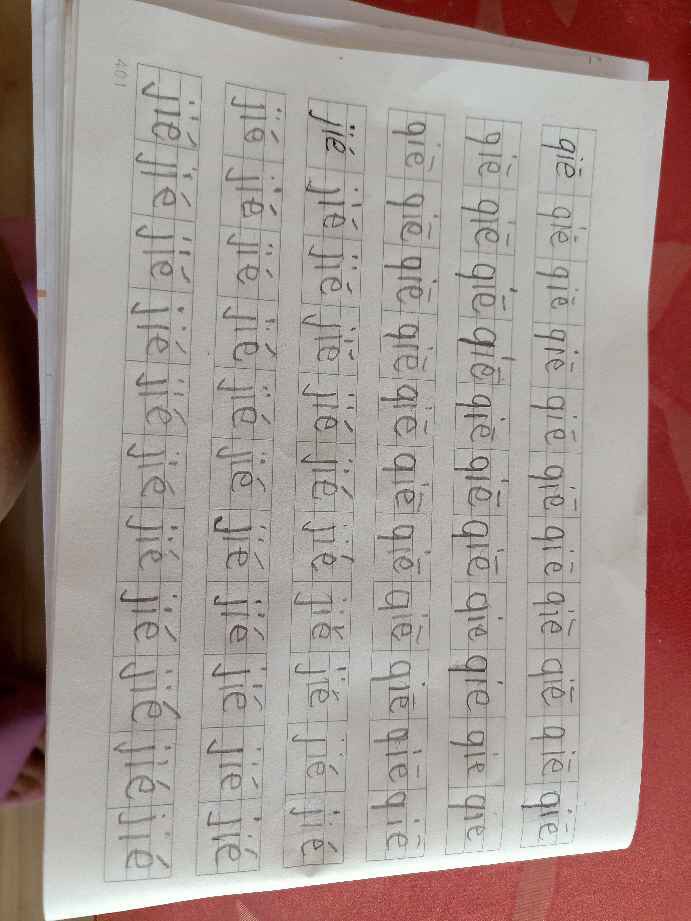 qiē qiē qiē qiē qiē qiē qiē qiē qiē qiē qiē
qiē qiē qiē qiē qiē qiē qiē qie qie qie qie
qiē qiē qiē qiē qiē qiē qiē qiē qiē qiē qiē
jié jié jié jié jié jié jié jié jié jié jié
jié jié jié jié jié jié jié jié jié jié jié
jié jié jié jié jié jié jié jié jié jié jié
401